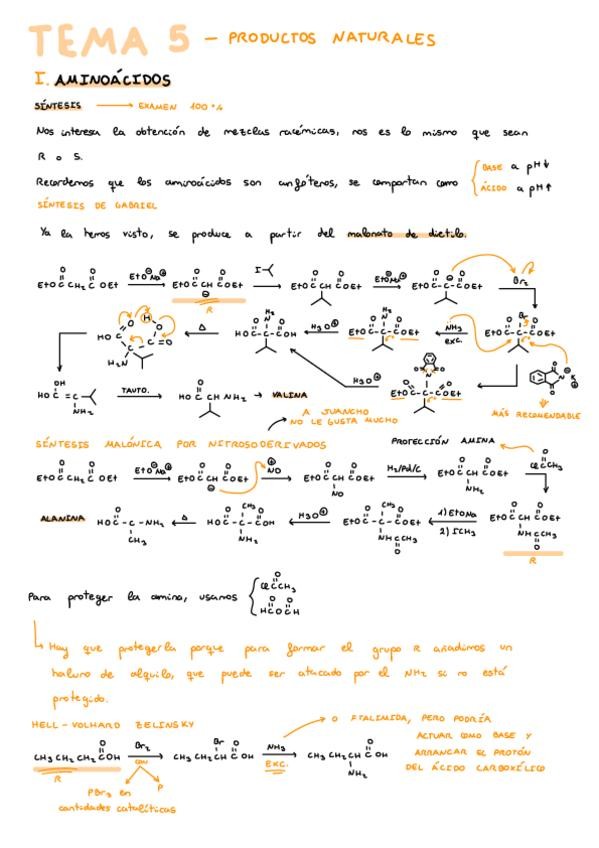 TEMA 5 – PRODUCTOS NATURALES
I. AMINOÁCIDOS
SÍNTESIS → EXAMEN 100%
Nos interesa la obtención de mezclas racémicas, nos es lo mismo que sean
R o S.
Recordemos que los aminoácidos son anfóteros, se comportan como { BASE a pH↓
ÁCIDO a pH↑
SÍNTESIS DE GABRIEL
Ya la hemos visto, se produce a partir del malonato de dietilo.
EtOCCH₂COEt EtO⁻Na⁺ EtOCCHCOEt I EtOCCHCOEt EtO⁻Na⁺ EtOCCCOEt Br₂
R
HOC H₂N Δ HOC-C-COH H₃O⁺ EtOC-C-COEt NH₃ exc. EtOC-C-COEt
HOC=C NH₂ TAUTO. HOCCHNH₂ → VALINA H₃O⁺ EtOC-C-COEt
MÁS RECOMENDABLE
A JUANCHO
NO LE GUSTA MUCHO
SÍNTESIS MALÓNICA POR NITROSODERIVADOS PROTECCIÓN AMINA
EtOCCH₂COEt EtO⁻Na⁺ EtOCCHCOEt ⁺NO EtOCCHCOEt NO H₂/Pd/C EtOCCHCOEt NH₂ ClCCH₃
ALANINA HOC-C-NH₂ CH₃ Δ HOCCCOH CH₃ NH₂ H₃O⁺ EtOC-C-COEt CH₃ NHCCH₃ 1) EtONa 2) ICH₃ EtOCCHCOEt NHCCH₃
R
Para proteger la amina, usamos { ClCCH₃
HCOCH
Hay que protegerla porque para formar el grupo R añadimos un
haluro de alquilo, que puede ser atacado por el NH₂ si no está
protegido.
HELL-VOLHARD ZELINSKY
O FTALIMIDA, PERO PODRÍA
ACTUAR COMO BASE Y
ARRANCAR EL PROTÓN
DEL ÁCIDO CARBOXÍLICO
CH₃CH₂CH₂COH Br₂ CON CH₃CH₂CHCOH Br NH₃ EXC. CH₃CH₂CHCOH NH₂
R
PBr₃ en P
cantidades catalíticas